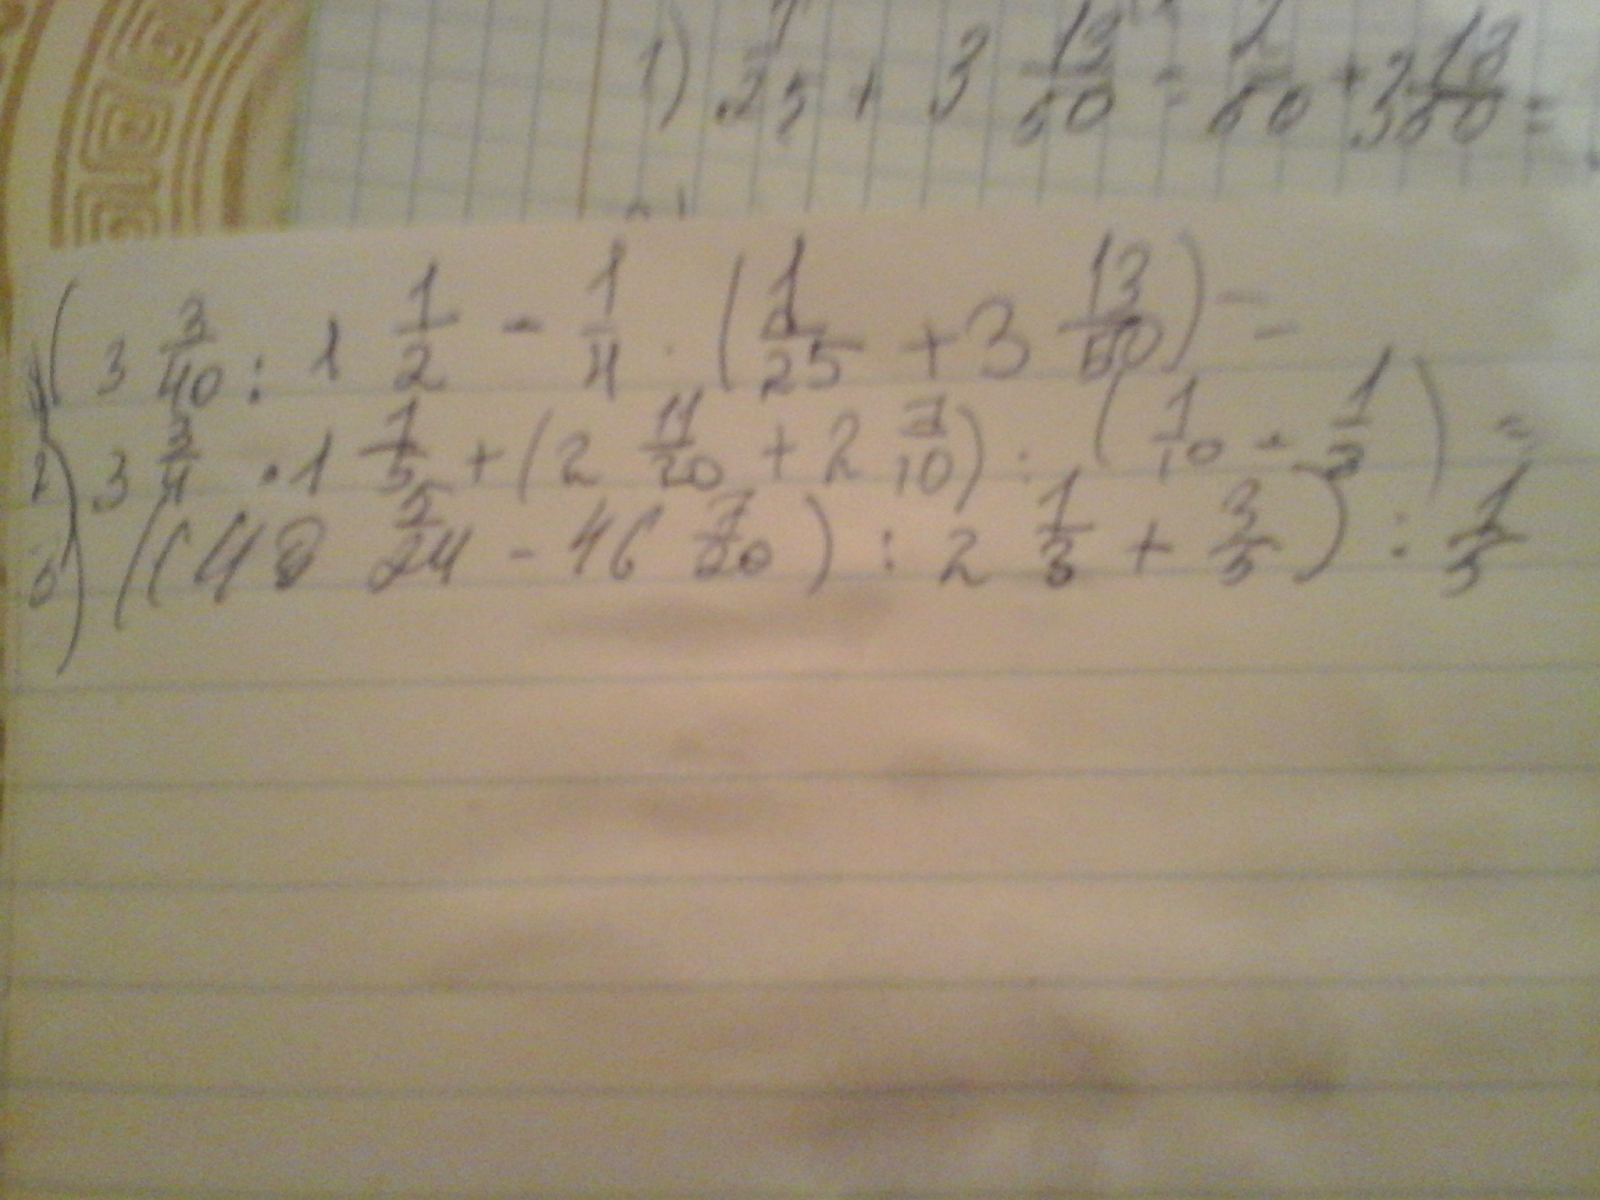 1) 1/25 + 3 13/50 = 2/50 + 3 13/50 =
1) 3 3/40 : 1 1/2 - 1/4 · (1/25 + 3 13/50) =
2) 3 3/4 · 1 1/5 + (2 11/20 + 2 7/10) : (1/10 + 1/2) =
3) ((48 5/24 - 46 7/20) : 2 1/3 + 3/5) : 1/5